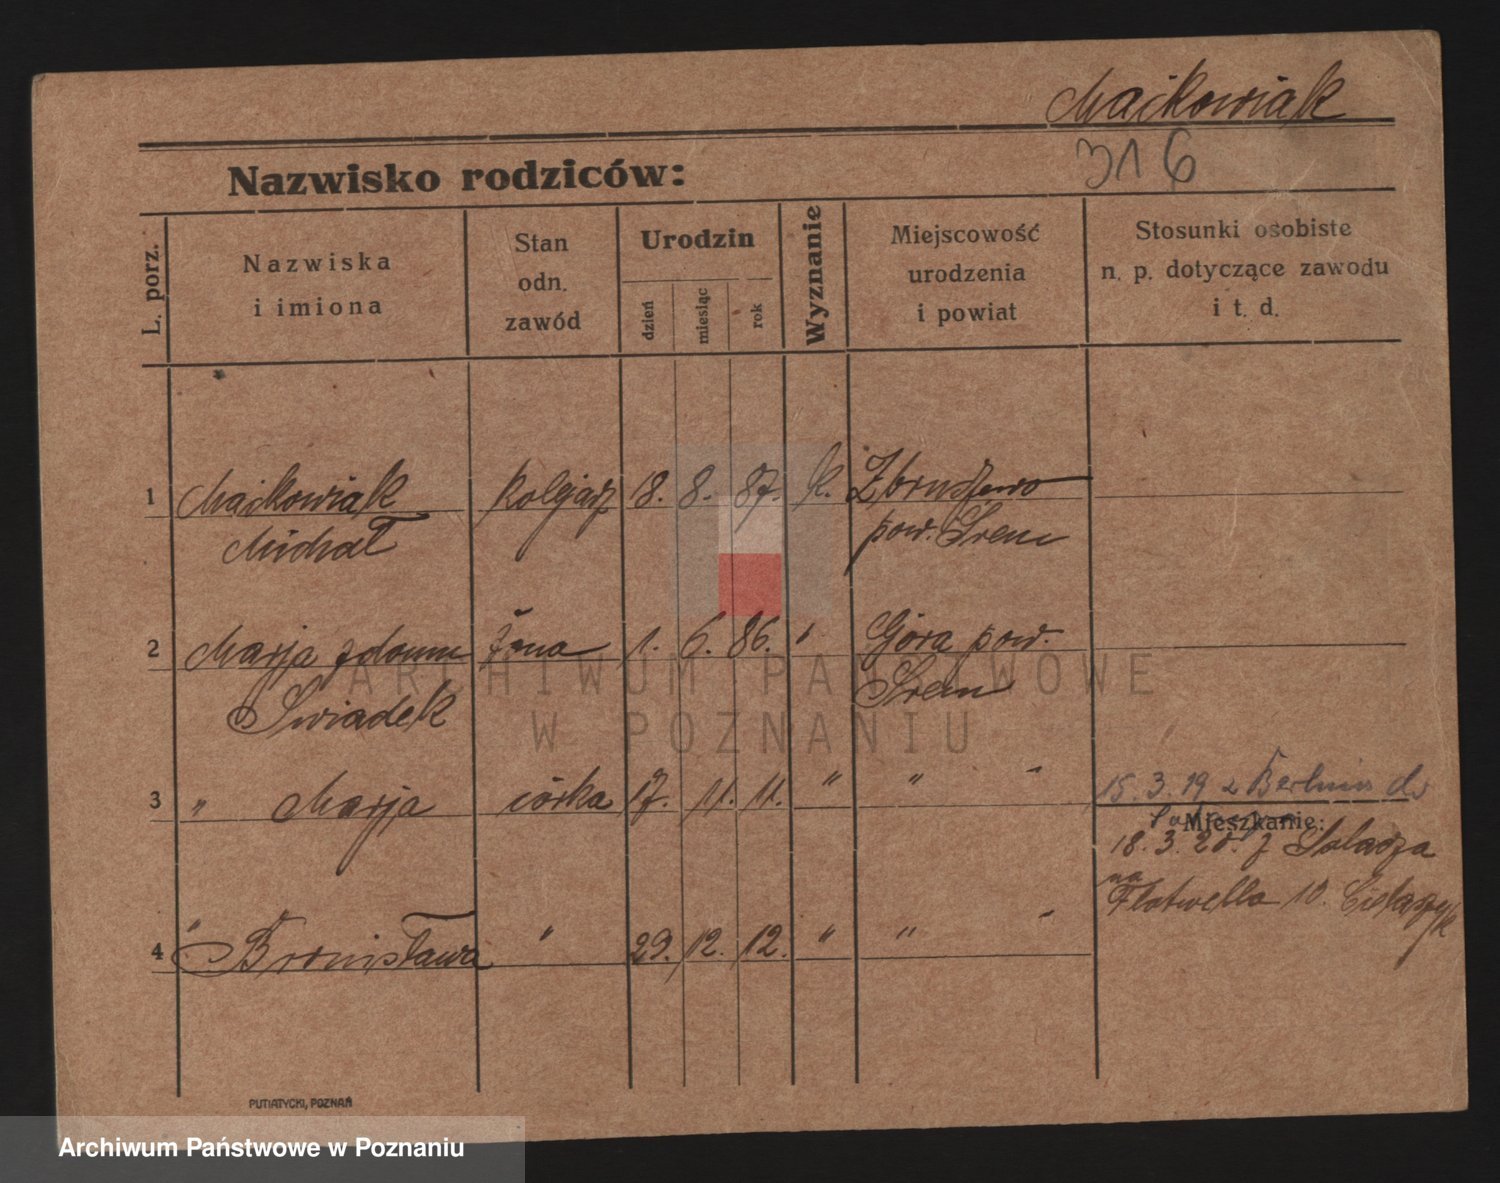 Maikowiak
316
Nazwisko rodziców:
L. porz.
Nazwiska
i imiona
Stan
odn.
zawód
Urodzin
dzień
miesiąc
rok
Wyznanie
Miejscowość
urodzenia
i powiat
Stosunki osobiste
n. p. dotyczące zawodu
i t. d.
1 Maikowiak kolejarz 18. 8. 87. k. Zbruszewo
Michał pow. Śrem
2 Marja z domu żona 1. 6. 86. " Góra pow.
Swiadek Śrem
3 " Marja córka 17. 11. 11. " " "
15. 3. 19 z Berlina do
Mieszkanie:
18. 3. 20. z Solacza
na
Flotwella 10.
4 " Bronisława " 29. 12. 12. " " "
ARCHIWUM PAŃSTWOWE
W POZNANIU
PUTIATYCKI, POZNAŃ
Archiwum Państwowe w Poznaniu